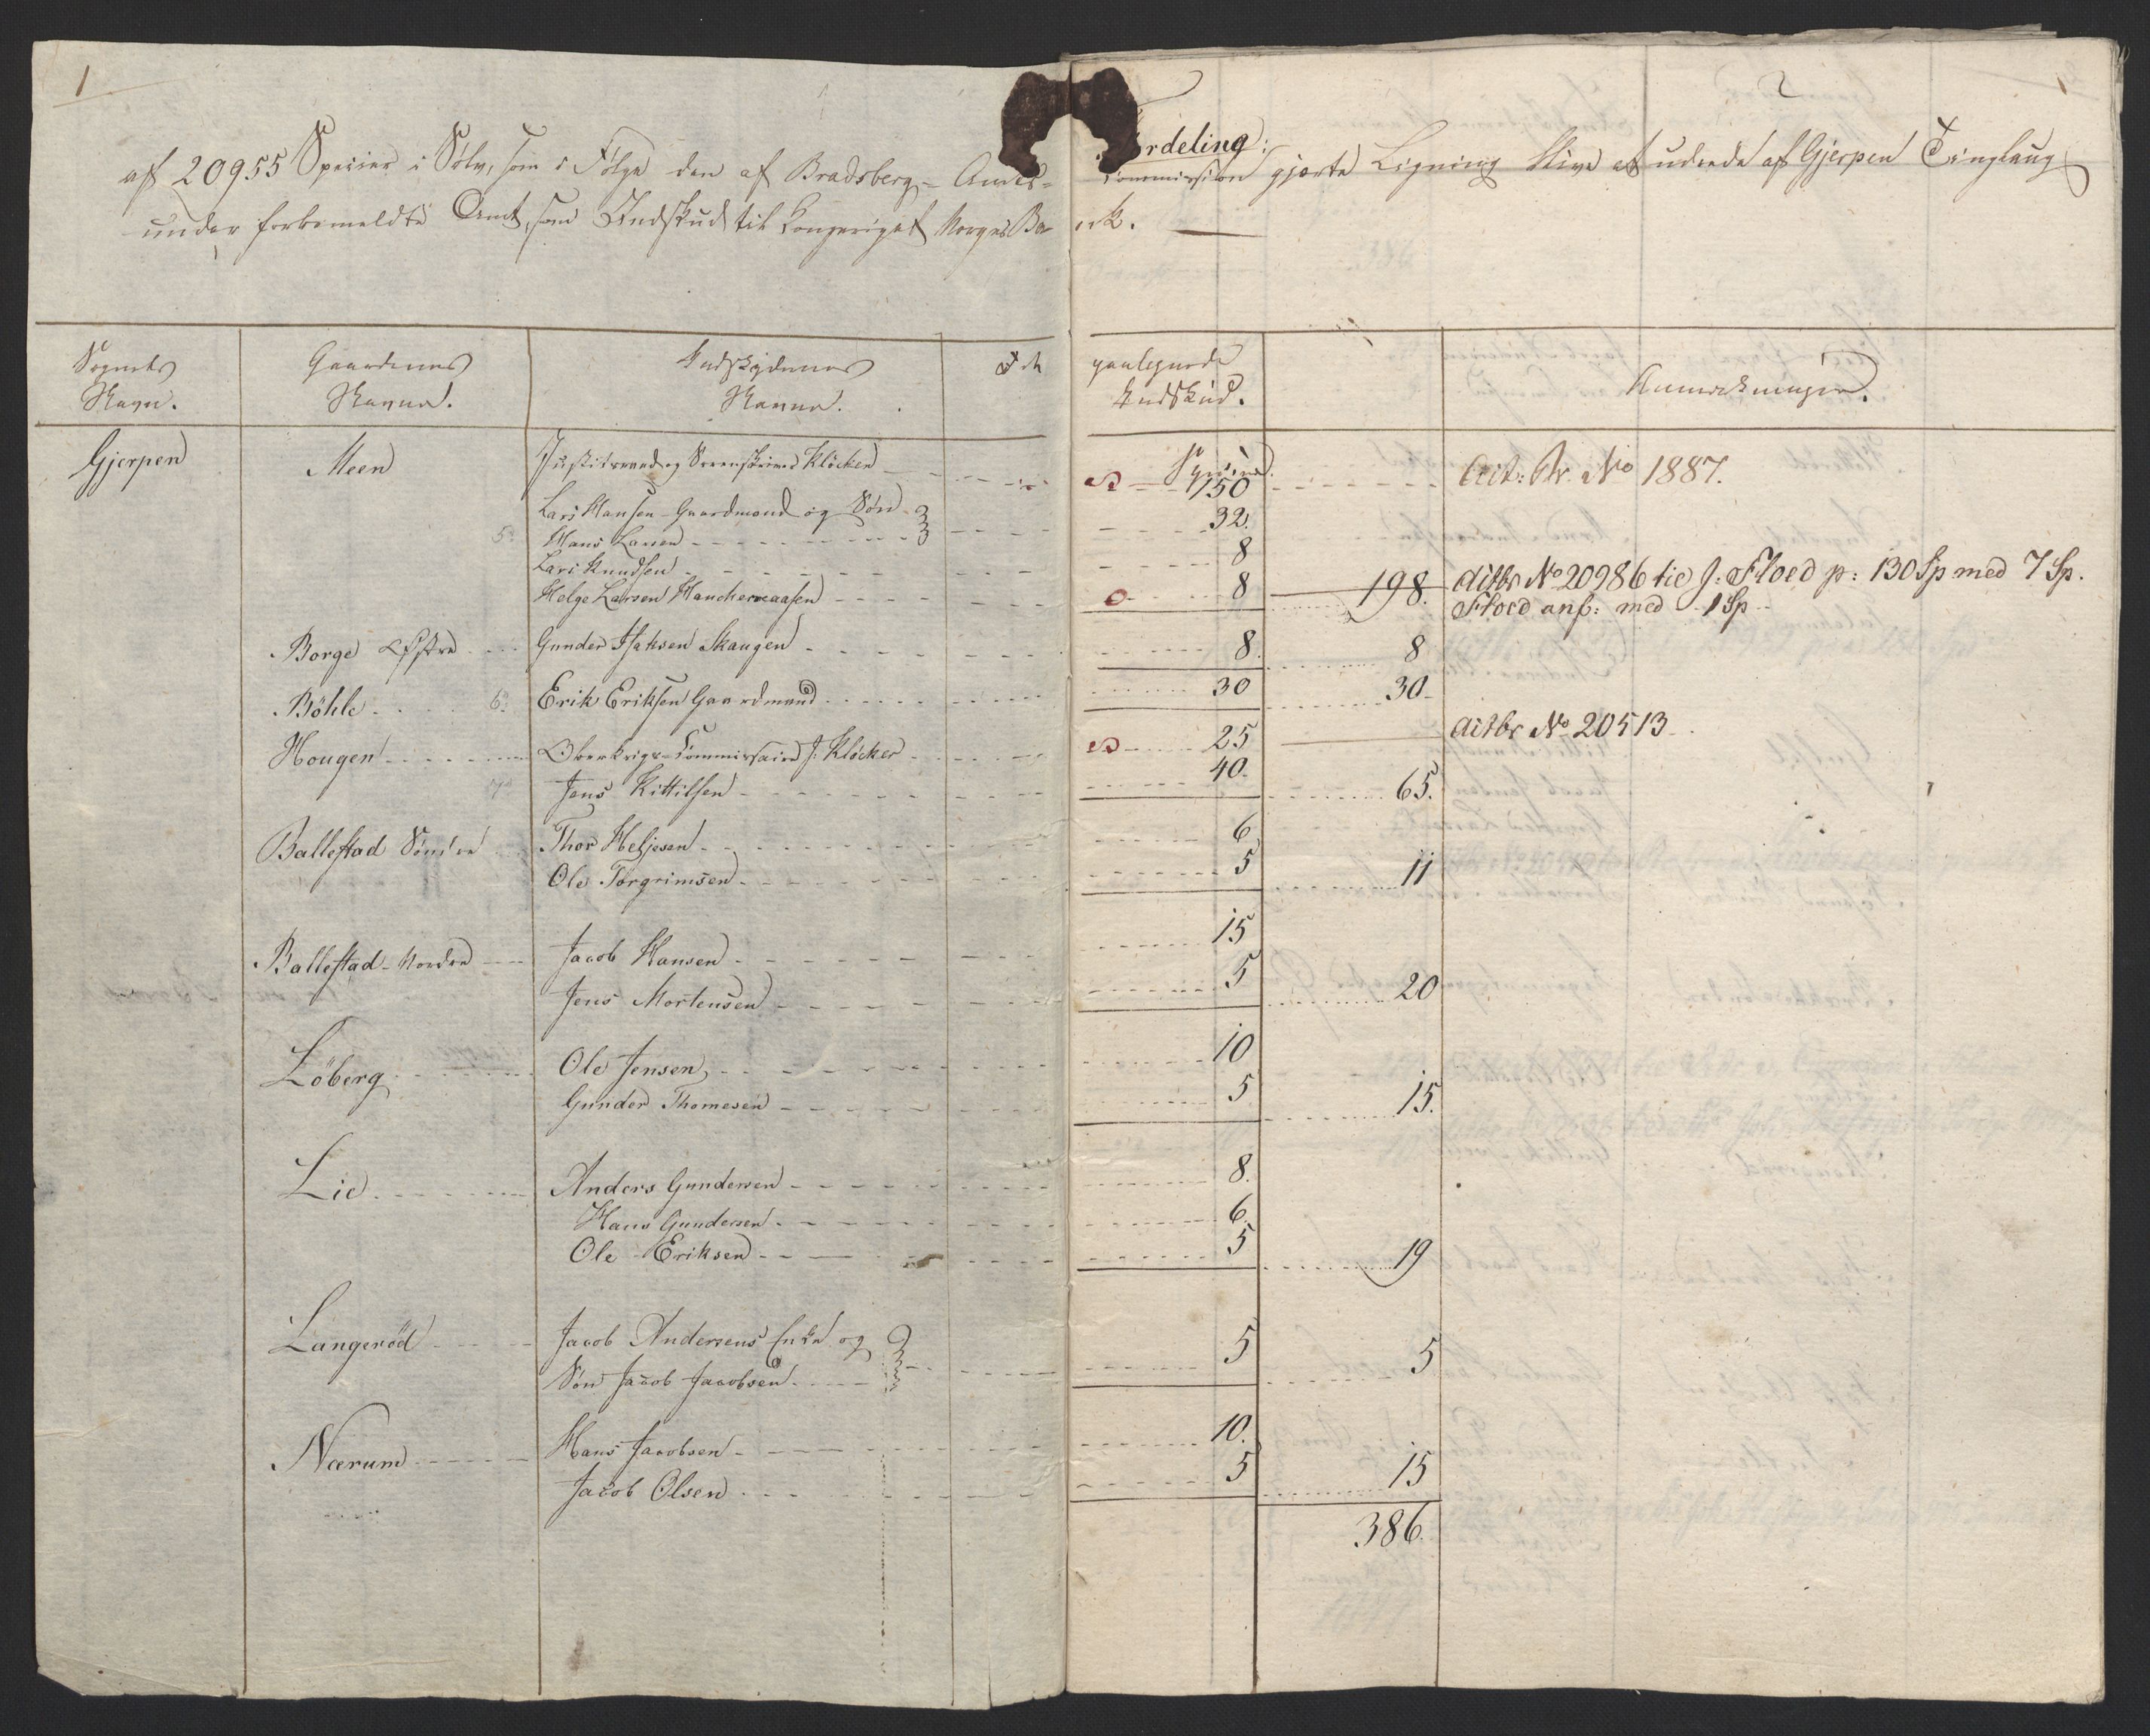 1
2
Fordeling:
af 20955 Species i Sølv, som i Følge den af Bradsberg-Amts- Commission gjorte Ligning blive at udrede af Gjerpen Tinglaug
under forbemeldte Amt, som Indskud til Kongeriget Norges Bank.
Sognets Navn. Gaardenes Navne. Indskydernes Navne. Det paalignede Indskud. Anmerkninger.
Species
Gjerpen Meen Justitsraad og Sorenskriver Klöcker 150 Act: Nr. No 1887.
Lars Hansen Gaardmand og Søn
5. Hans Larsen 32.
Lars Knudsen 8
Helge Larsen 8 198. Actbr No 20986 tie J: Floed p: 130 Sp med 7 Sp.
Floed anf: med 1 Sp
Borge Østre Gunder Isaksen Skaugen 8. 8
Böhle 6. Erik Eriksen Gaardmand 30 30
Hougen Oberkrigs-Commissaire J. Klöcker 25 Actbr No 20513
7 Jens Kittilsen 40. 65.
Ballestad Söndre Thor Heljesen 6
Ole Torgrimsen 5 11
Ballestad Nordre Jacob Hansen 15
Jens Mortensen 5 20
Löberg Ole Jensen 10
Gunder Thomesen 5 15.
Lie Anders Gundersen 8.
Hans Gundersen 6.
Ole Eriksen 5 19
Langeröd Jacob Andersens Enke og
Søn Jacob Jacobsen 5 5
Nærum Hans Jacobsen 10.
Jacob Olsen 5 15
386.